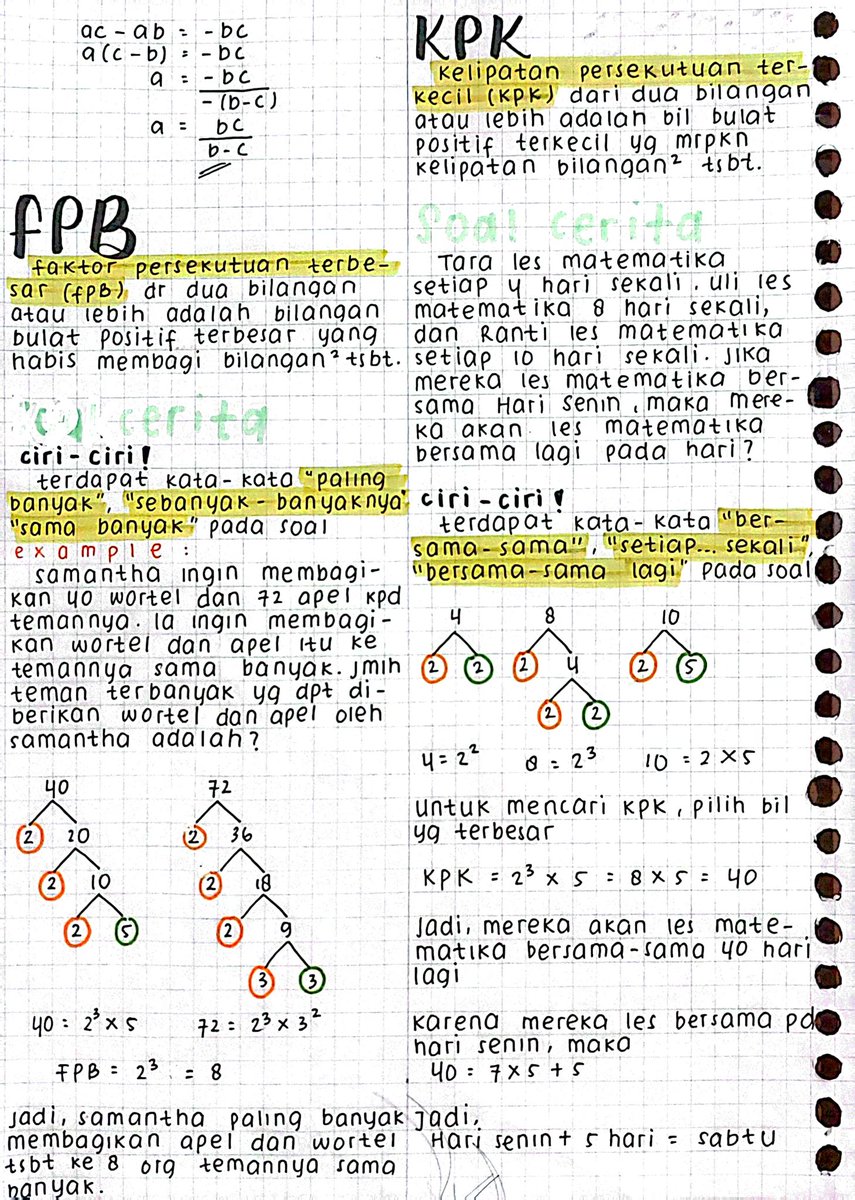 ac - ab = - bc
a(c-b) = - bc
a = - bc
-(b-c)
a = bc
b-c
FPB
faktor persekutuan terbe-
sar (fPB) dr dua bilangan
atau lebih adalah bilangan
bulat positif terbesar yang
habis membagi bilangan² tsbt.
cerita
ciri-ciri!
terdapat kata-kata "paling
banyak", "sebanyak-banyaknya"
"sama banyak" pada soal
example :
samantha ingin membagi-
kan 40 wortel dan 72 apel kpd
temannya. Ia ingin membagi-
kan wortel dan apel itu ke
temannya sama banyak. jmlh
teman terbanyak yg dpt di-
berikan wortel dan apel oleh
samantha adalah?
40 72
2 20 2 36
2 10 2 18
2 5 2 9
3 3
40 = 2³ × 5 72 = 2³ × 3²
FPB = 2³ = 8
jadi, samantha paling banyak
membagikan apel dan wortel
tsbt ke 8 org temannya sama
banyak.
KPK
Kelipatan persekutuan ter-
kecil (KPK) dari dua bilangan
atau lebih adalah bil bulat
positif terkecil yg mrpkn
kelipatan bilangan² tsbt.
Soal cerita
Tara les matematika
setiap 4 hari sekali. uli les
matematika 8 hari sekali,
dan Ranti les matematika
setiap 10 hari sekali. jika
mereka les matematika ber-
sama Hari senin, maka mere-
ka akan les matematika
bersama lagi pada hari?
ciri-ciri!
terdapat kata-kata "ber-
sama-sama", "setiap... sekali",
"bersama-sama lagi" pada soal
4 8 10
2 2 2 4 2 5
2 2
4 = 2² 8 = 2³ 10 = 2 × 5
untuk mencari KPK, pilih bil
yg terbesar
KPK = 2³ × 5 = 8 × 5 = 40
Jadi, mereka akan les mate-
matika bersama-sama 40 hari
lagi
karena mereka les bersama pd
hari senin, maka
40 = 7 × 5 + 5
jadi,
Hari senin + 5 hari = sabtu